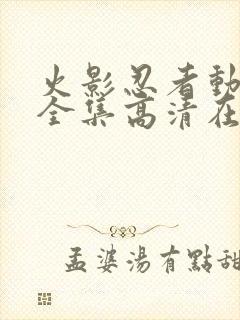 火影忍者動
全集高清在
孟婆湯有點甜